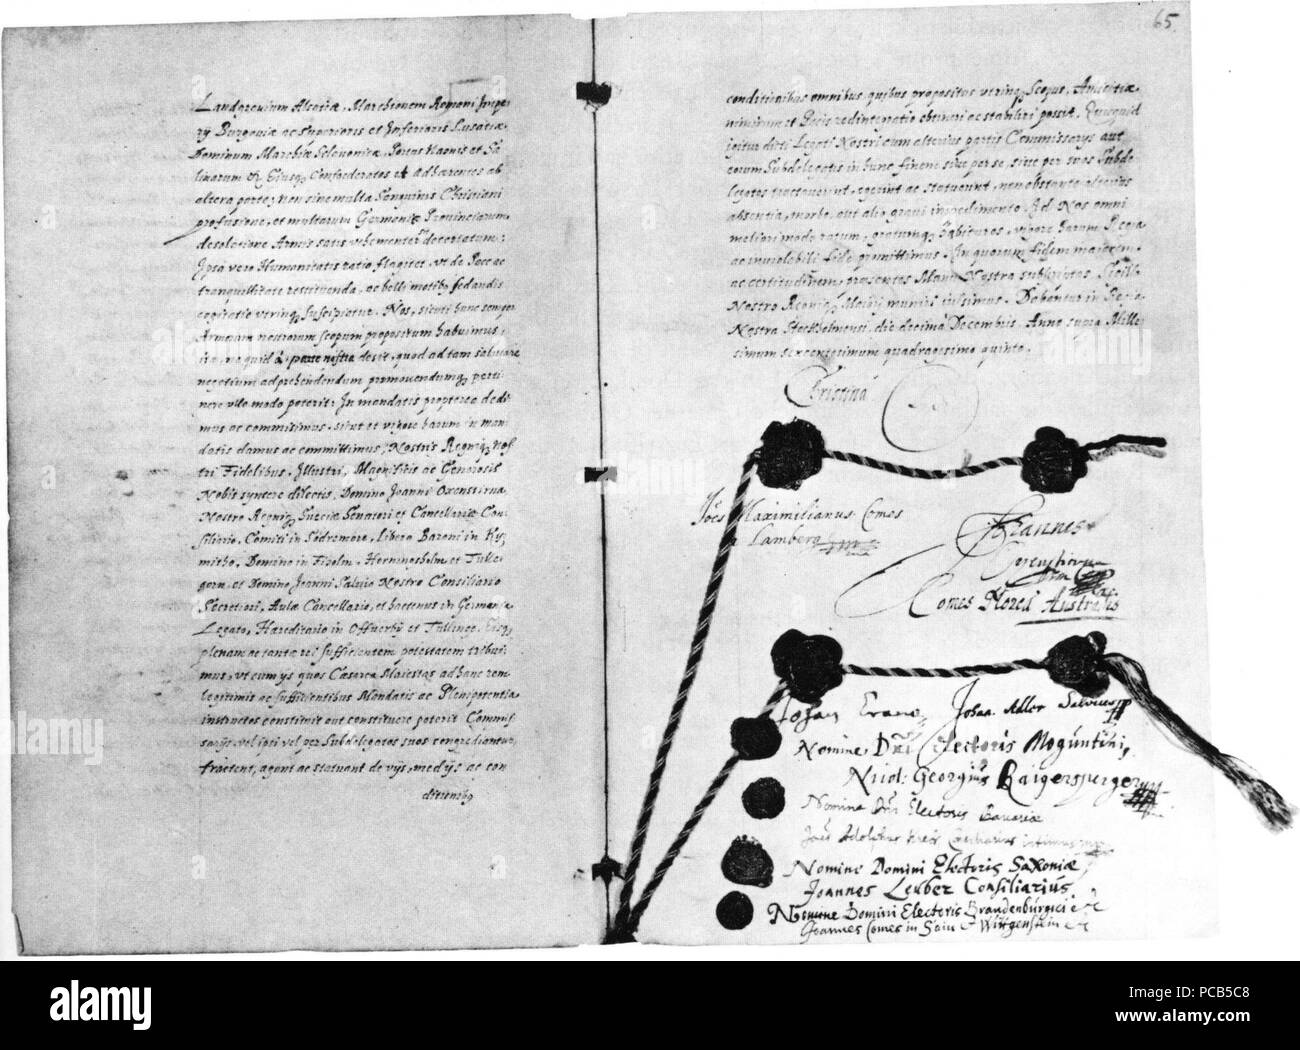 Landgravium Alsatiæ, Marchionem Romani Impe-
rÿ Burgoviæ ac Superioris et Inferioris Lusatiæ
Dominum Marchiæ Sclavonicæ, Portus Naonis et Sa-
linarum &c Ejusq, Confœderatos et adhærentes ab
altera parte, non sine multa Sanguinis Christiani
profusione, et multarum Germaniæ Provinciarum
desolatione Armis satis vehementer decertatum:
Ipsa vero Humanitatis ratio flagitet, ut de Pace ac
tranquillitate restituenda, ac belli motibus sedandis
cogitatio utrinq, suscipiatur. Nos, sicuti hunc semper
Armorum nostrorum scopum propositum habuimus,
ita, ne quid â parte nostra desit, quod ad tam salutare
negotium adprehendendum promovendumq, perti-
nere ullo modo poterit: In mandatis propterea dedi-
mus ac commisimus, sicut et vigore harum in man-
datis damus ac committimus, Nostris Regniq, nos-
tri Fidelibus, Illustri, Magnificis ac Generosis
Nobis syncere dilectis, Domino Joanni Oxenstirna,
Nostro Regniq, Sueciæ Senatori et Cancellariæ Con-
siliario, Comiti in Södremore, Libero Baroni in Ky-
mitho, Domino in Fiholm, Horningsholm et Tulle-
garn, et Domino Joanni Salvio Nostro Consiliario
Secretiori, Aulæ Cancellario, et hactenus in Germania
Legato, Hæreditario in Offverby et Tullinge. Eisq,
plenam ac tantæ rei sufficientem potestatem tribui-
mus, ut cum ijs quos Cæsarea Maiestas ad hanc rem
legitimis ac sufficientibus Mandatis ac Plenipotentia
instructos constituit aut constituere poterit Commis-
sarijs, vel ipsi vel per Subdelegatos suos congrediantur,
tractent, agant ac statuant de vijs, medijs ac con-
ditionibq
65
conditionibus omnibus quibus propositus utrinq, scopus, Amicitiæ
nimirum et Pacis redintegratio obtineri ac stabiliri possit. Quicquid
igitur dicti Legati Nostri cum alterius partis Commissarijs aut
eorum Subdelegatis in hunc finem sive per se, sive per suos Subde-
legatos tractaverint, egerint ac statuerint, non obstante alterius
absentia, morbo, aut alio gravi impedimento Id Nos omni
meliori modo ratum, gratumq, habituros, vigore harum Regia
ac inviolabili fide promittimus. In quorum fidem majorem
ac certitudinem, præsentes Manu Nostra subscriptas Sigillo
Nostro Regniq, Majori muniri iussimus. Dabantur in Regia
Nostra Stockholmensi, die decima Decembris. Anno supra Mille-
simum sexcentesimum quadragesimo quinto.
Christina
Joēs Maximilianus Comes
a Lamberg
Johannes
Comes
Johan
Johan Adler Salvius
Nomine Dn̄i Electoris Moguntini,
Nicol: Georgius Raigersperger
Nomine Dn̄i Electoris Bavariæ
Joēs Adolphus Krebs Consiliarius intimus
Nomine Domini Electoris Saxoniæ
Joannes Leuber Consiliarius
Nomine Domini Electoris Brandenburgici etc
Joannes Comes in Sain & Wittgenstein etc
alamy
Image ID: PCB5C8
www.alamy.com